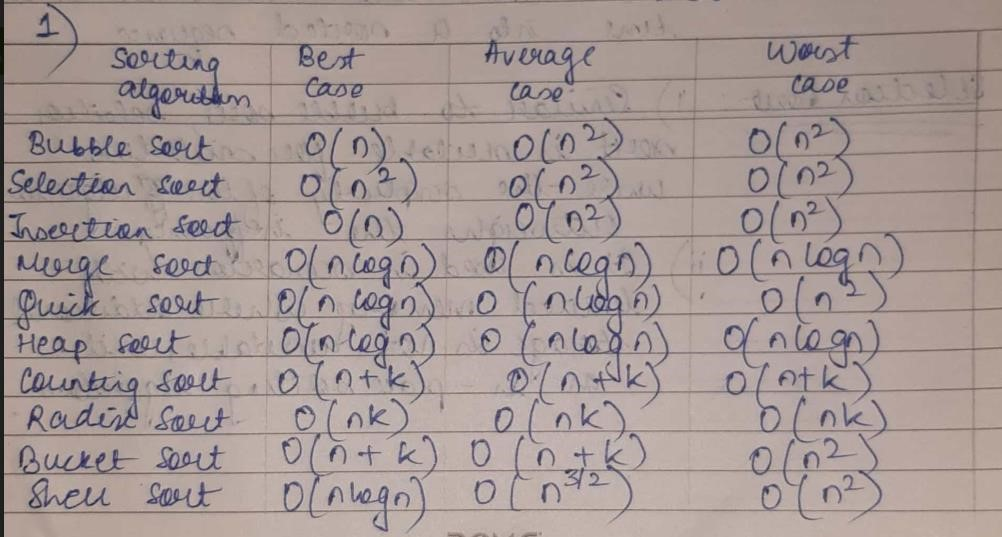 1)
Sorting algorithm Best case Average case Worst case
Bubble sort O(n) O(n²) O(n²)
Selection sort O(n²) O(n²) O(n²)
Insertion sort O(n) O(n²) O(n²)
Merge sort O(n log n) O(n log n) O(n log n)
Quick sort O(n log n) O(n log n) O(n²)
Heap sort O(n log n) O(n log n) O(n log n)
Counting sort O(n+k) O(n+k) O(n+k)
Radix sort O(nk) O(nk) O(nk)
Bucket sort O(n+k) O(n+k) O(n²)
Shell sort O(n log n) O(n^3/2) O(n²)